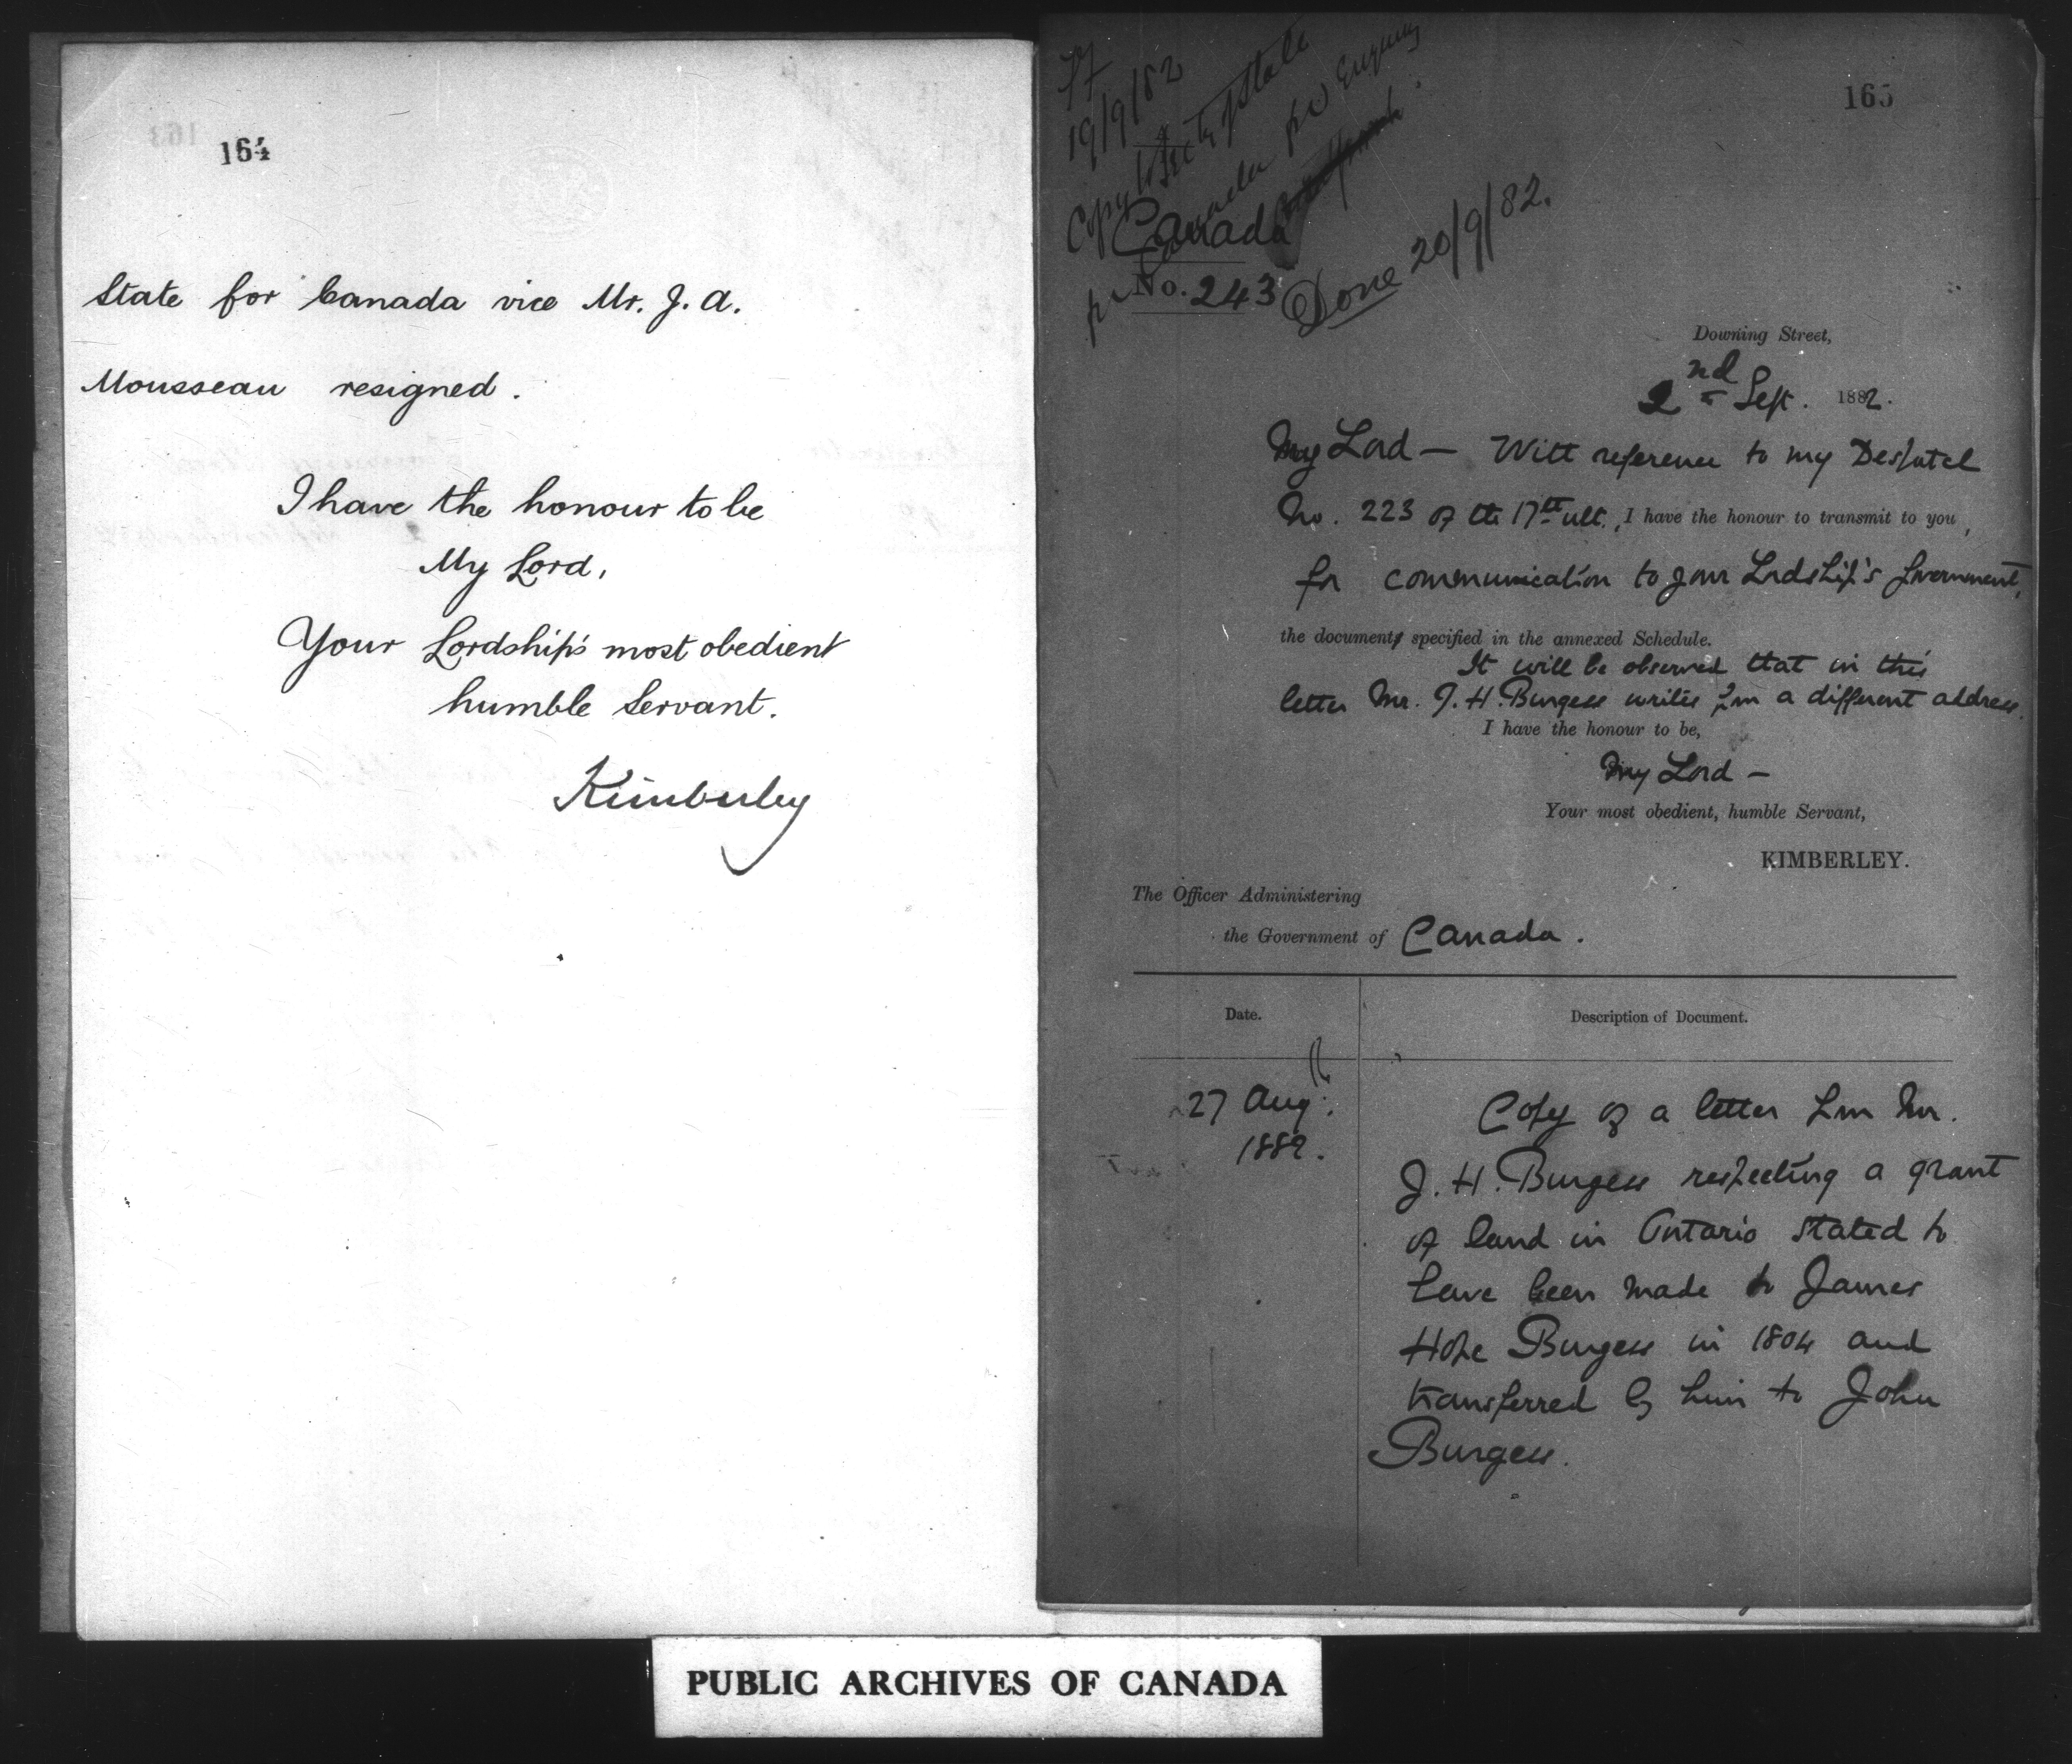 164
State for Canada vice Mr. J. A.
Mousseau resigned.
I have the honour to be
My Lord,
Your Lordship's most obedient
humble Servant.
Kimberley
165
19/9/82
Copy to Secty of State
Canada for Enquiry
Canada
No. 243
Done 20/9/82.
Downing Street,
2nd Sept. 1882.
My Lord — With reference to my Despatch
No. 223 of the 17th ult., I have the honour to transmit to you,
for communication to your Lordship's Government,
the documents specified in the annexed Schedule.
It will be observed that in this
letter Mr. J. H. Burgess writes from a different address.
I have the honour to be,
My Lord —
Your most obedient, humble Servant,
KIMBERLEY.
The Officer Administering
the Government of Canada.
Date.
Description of Document.
27 Aug:
1882.
Copy of a letter from Mr.
J. H. Burgess respecting a grant
of land in Ontario stated to
have been made to James
Hope Burgess in 1804 and
transferred by him to John
Burgess.
PUBLIC ARCHIVES OF CANADA